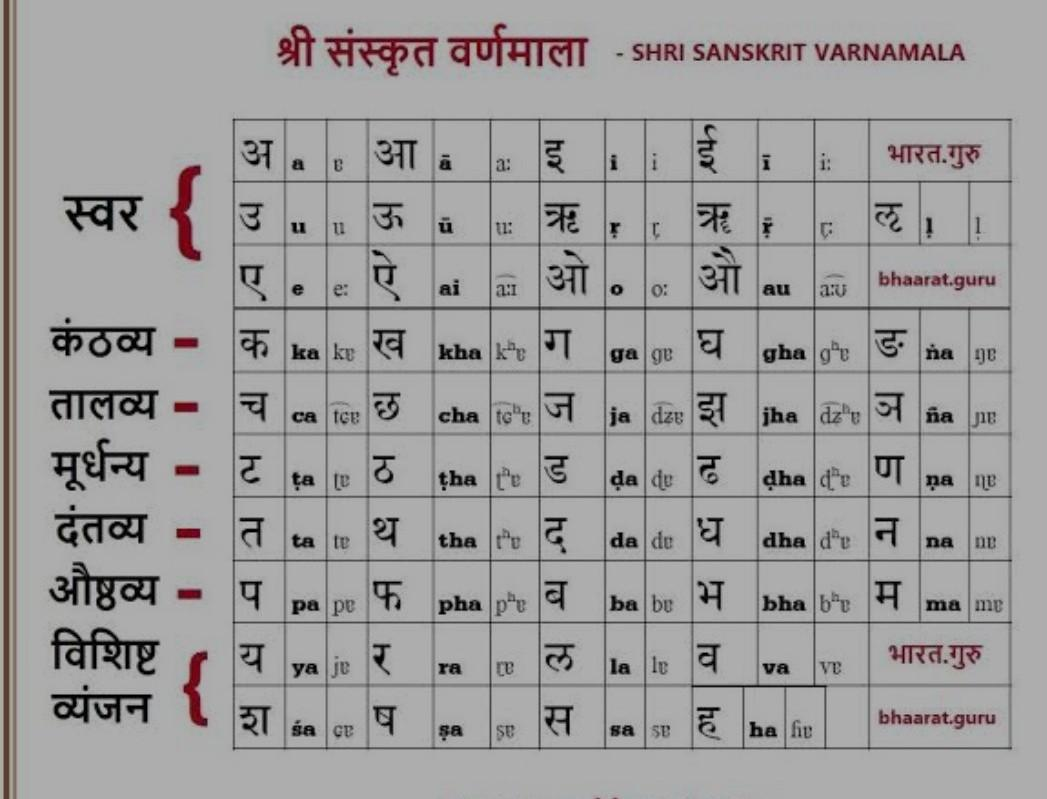 श्री संस्कृत वर्णमाला - SHRI SANSKRIT VARNAMALA
अ a ɐ आ ā aː इ i i ई ī iː भारत.गुरु
स्वर { उ u u ऊ ū uː ऋ ṛ ɽ ॠ ṝ ɽː ऌ ḷ l̩
ए e eː ऐ ai aːɪ ओ o oː औ au aːʊ bhaarat.guru
कंठव्य - क ka kɐ ख kha kʰɐ ग ga gɐ घ gha gʰɐ ङ ṅa ŋɐ
तालव्य - च ca t͡ɕɐ छ cha t͡ɕʰɐ ज ja d͡ʑɐ झ jha d͡ʑʰɐ ञ ña ɲɐ
मूर्धन्य - ट ṭa ʈɐ ठ ṭha ʈʰɐ ड ḍa ɖɐ ढ ḍha ɖʰɐ ण ṇa ɳɐ
दंतव्य - त ta tɐ थ tha tʰɐ द da dɐ ध dha dʰɐ न na nɐ
औष्ठव्य - प pa pɐ फ pha pʰɐ ब ba bɐ भ bha bʰɐ म ma mɐ
विशिष्ट य ya jɐ र ra ɽɐ ल la lɐ व va vɐ भारत.गुरु
व्यंजन { श śa ɕɐ ष ṣa ʂɐ स sa sɐ ह ha ɦɐ bhaarat.guru